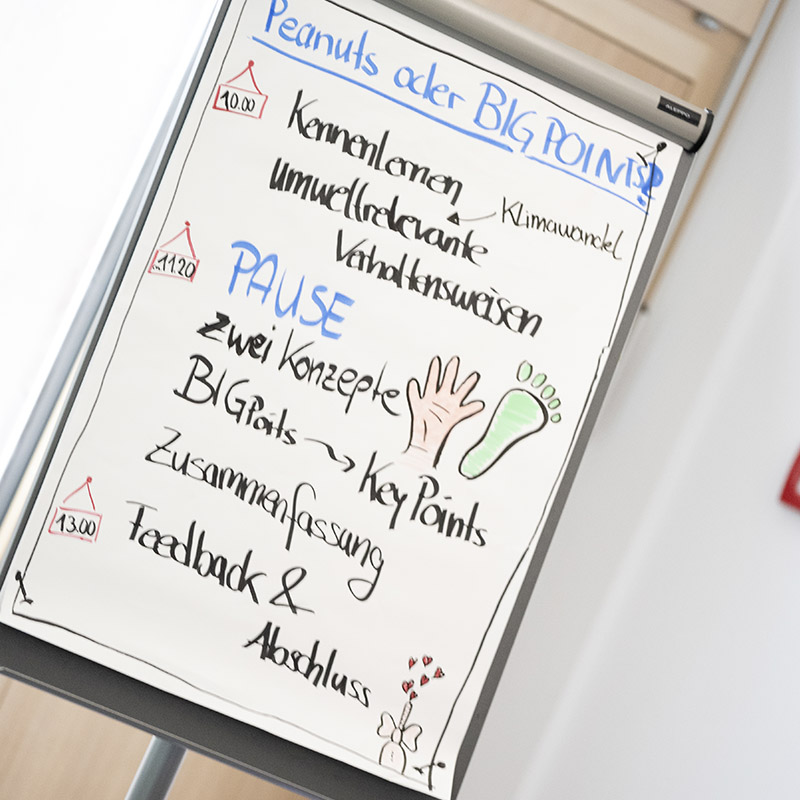 Peanuts oder BIG POINTS?
10.00
Kennenlernen
umweltrelevante
Klimawandel
Verhaltensweisen
11.20
PAUSE
zwei Konzepte
BIG Points → Key Points
Zusammenfassung
13.00
Feedback &
Abschluss